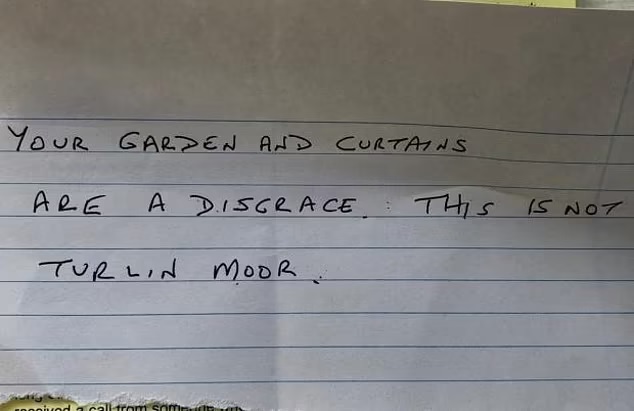 YOUR GARDEN AND CURTAINS
ARE A DISGRACE. : THIS IS NOT
TURLIN MOOR.
received a call from someone